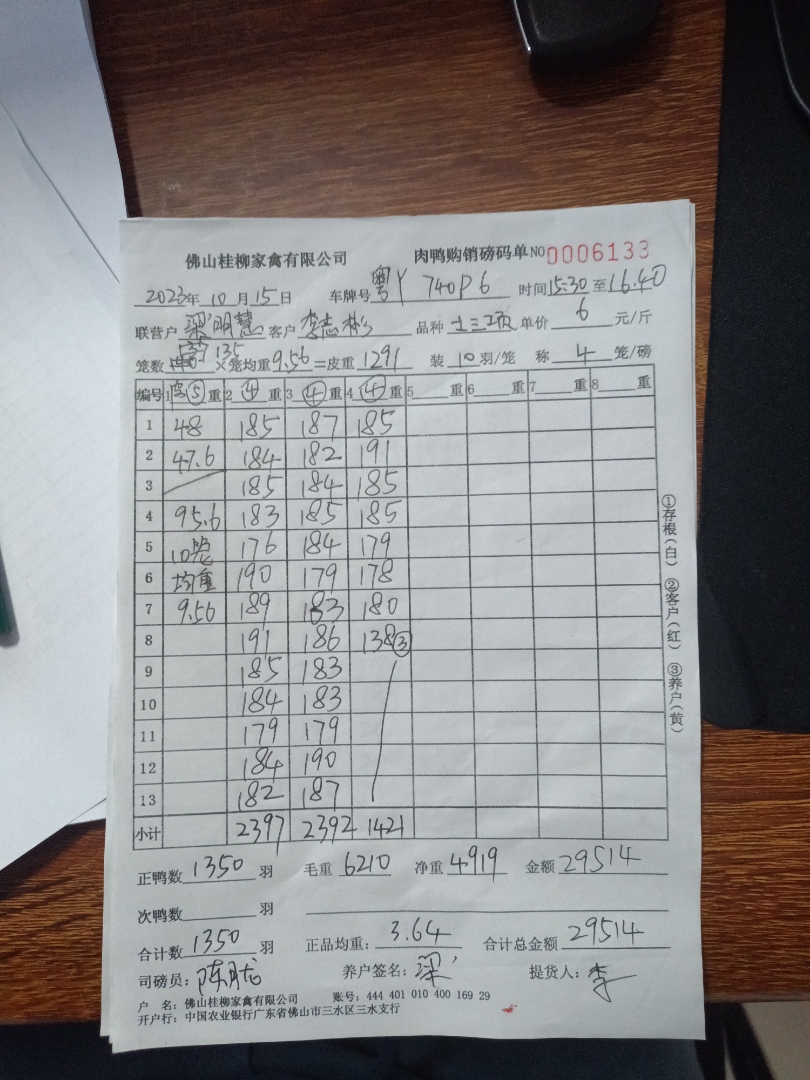 佛山桂柳家禽有限公司 肉鸭购销磅码单 NO 0006133
2023年 10 月 15 日 车牌号 粤Y 740P6 时间 15:30 至 16.40
联营户 梁明慧 客户 李志彬 品种 土三项 单价 6 元/斤
笼数 135 ×笼均重 9.56 =皮重 1291 装 10 羽/笼 称 4 笼/磅
编号 1 ⑤ 重 2 ④ 重 3 ④ 重 4 ④ 重 5 重 6 重 7 重 8 重
1 48 185 187 185
2 47.6 184 182 191
3 185 184 185
4 95.6 183 185 185
5 10笼 176 184 179
6 均重 190 179 178
7 9.56 189 183 180
8 191 186 138③
9 185 183
10 184 183
11 179 179
12 184 190
13 182 187
小计 2397 2392 1421
①存根(白) ②客户(红) ③养户(黄)
正鸭数 1350 羽 毛重 6210 净重 4919 金额 29514
次鸭数 羽
合计数 1350 羽 正品均重: 3.64 合计总金额 29514
司磅员: 陈 养户签名: 梁 提货人: 李
户 名: 佛山桂柳家禽有限公司 账号: 444 401 010 400 169 29
开户行: 中国农业银行广东省佛山市三水区三水支行